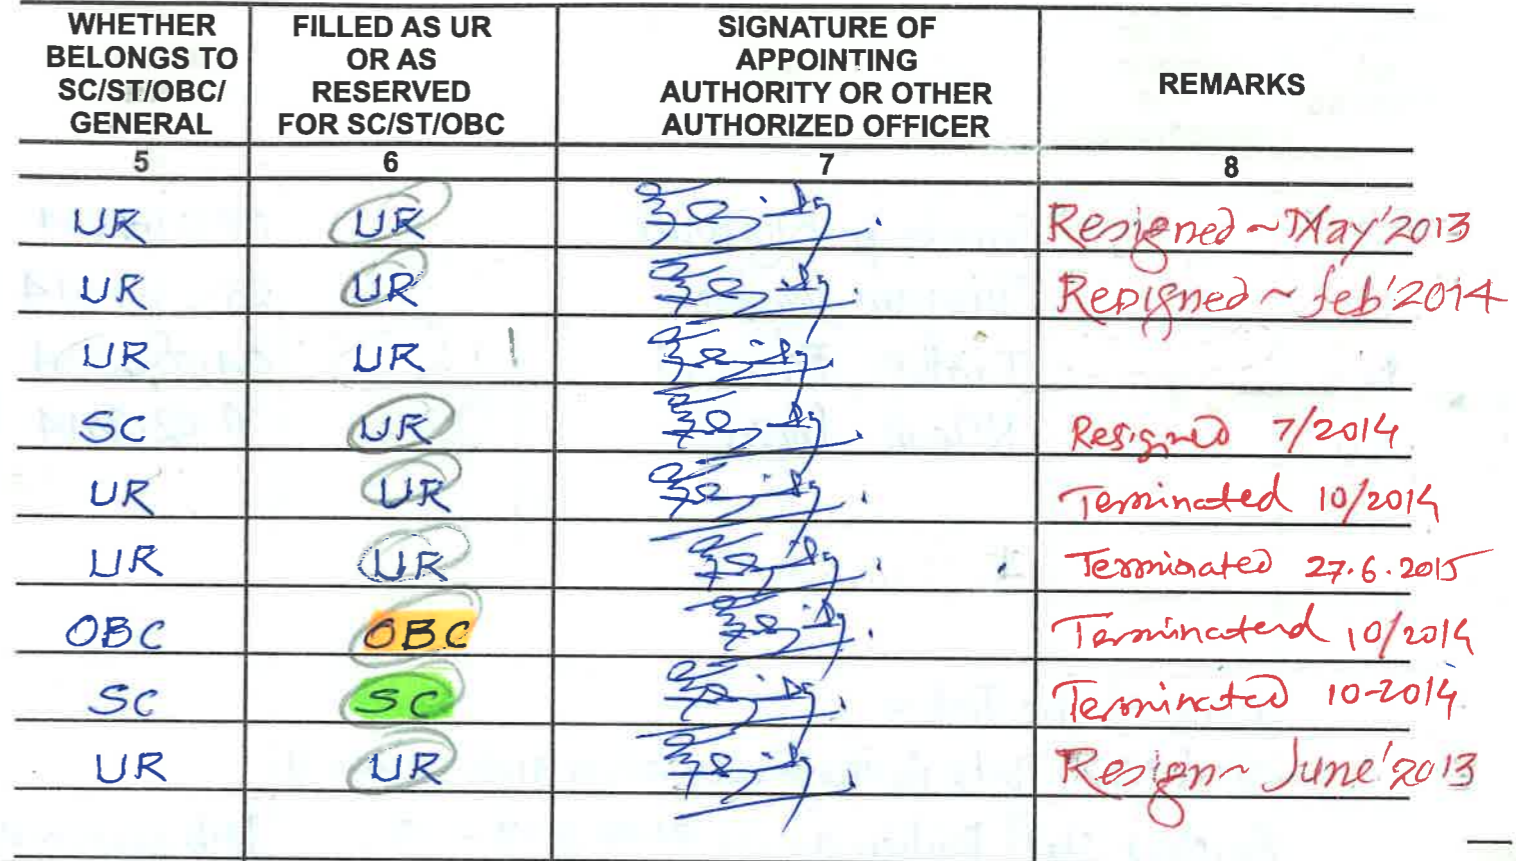 WHETHER BELONGS TO SC/ST/OBC/ GENERAL | FILLED AS UR OR AS RESERVED FOR SC/ST/OBC | SIGNATURE OF APPOINTING AUTHORITY OR OTHER AUTHORIZED OFFICER | REMARKS
5 | 6 | 7 | 8
UR | UR | | Resigned ~ May'2013
UR | UR | | Resigned ~ feb'2014
UR | UR | |
SC | UR | | Resigned 7/2014
UR | UR | | Terminated 10/2014
UR | UR | | Terminated 27.6.2015
OBC | OBC | | Terminaterd 10/2014
SC | SC | | Terminated 10-2014
UR | UR | | Resign ~ June'2013